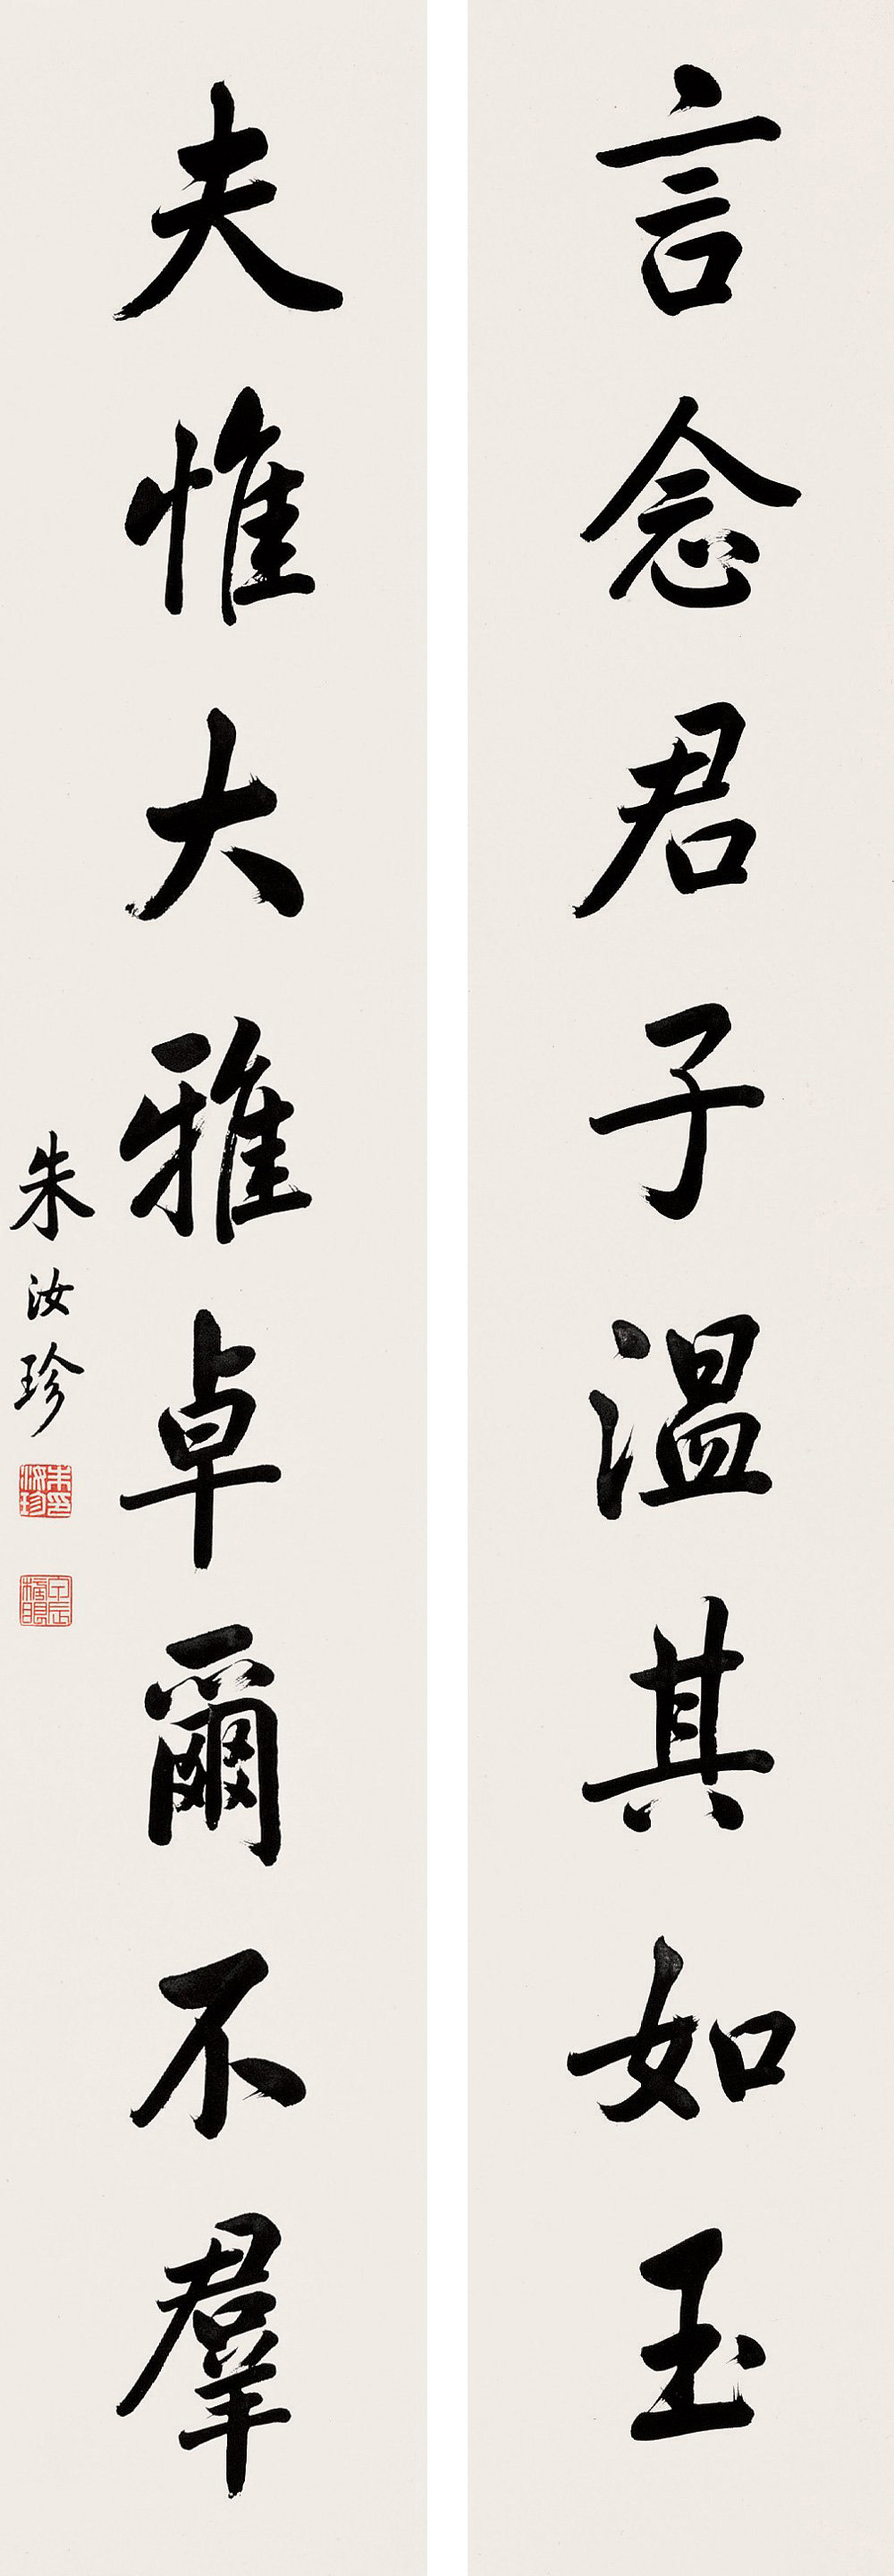 言念君子温其如玉
夫惟大雅卓爾不羣
朱汝珍
朱汝珍印